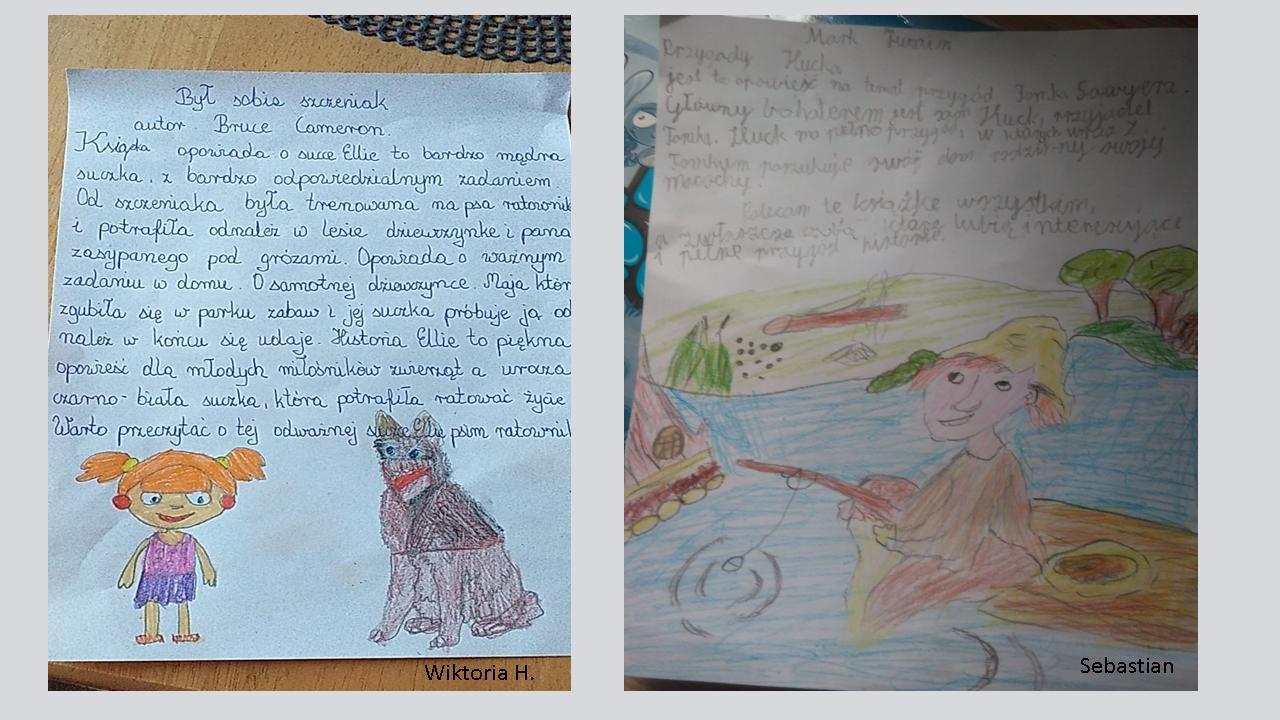 Był sobie szczeniak
autor Bruce Cameron.
Książka opowiada o suce Ellie to bardzo mądra
suczka, z bardzo odpowiedzialnym zadaniem.
Od szczeniaka była trenowana na psa ratownik
i potrafiła odnaleź w lesie dziewczynke i pana
zasypanego pod grózami. Opowiada o ważnym
zadaniu w domu. O samotnej dziewczynce. Maja któr
zgubiła się w parku zabaw i jej suczka próbuje ją od
naleź w końcu się udaje. Historia Ellie to piękna
opowieść dla młodych miłośników zwierząt a urocza
czarno-biała suczka, która potrafiła ratować życie
Warto przeczytać o tej odważnej suczce Ellie psim ratownik
Wiktoria H.
Mark Twain
Przygody Hucka
jest to opowieść na temat przygód Tomka Sawyera.
Głównym bohaterem jest sam Huck, przyjaciel
Tomka. Huck ma pełno przygód, w których wraz z
Tomkiem poszukuje swój dom rodzinny swojej
macochy.
Polecam tę książkę wszystkim,
a zwłaszcza które lubią interesujące
i pełne przygód historie.
Sebastian